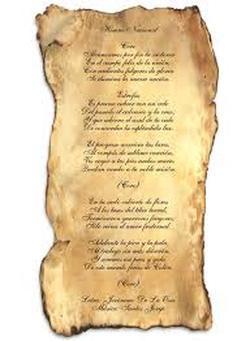 Himno Nacional
Coro
Alcanzamos por fin la victoria
En el campo feliz de la unión,
Con ardientes fulgores de gloria
Se ilumina la nueva nación.
Estrofas
Es preciso cubrir con un velo
Del pasado el calvario y la cruz,
Y que adorne el azul de tu cielo
De concordia la espléndida luz.
El progreso acaricia tus lares,
Al compás de sublime canción,
Ves rugir a tus pies ambos mares
Que dan rumbo a tu noble misión.
(Coro)
En tu suelo cubierto de flores
A los besos del tibio terral,
Terminaron guerreros fragores;
Sólo reina el amor fraternal.
Adelante la pica y la pala,
Al trabajo sin más dilación,
Y seremos así prez y gala
De este mundo feraz de Colón.
(Coro)
Letra: Jerónimo De La Ossa
Música: Santos Jorge